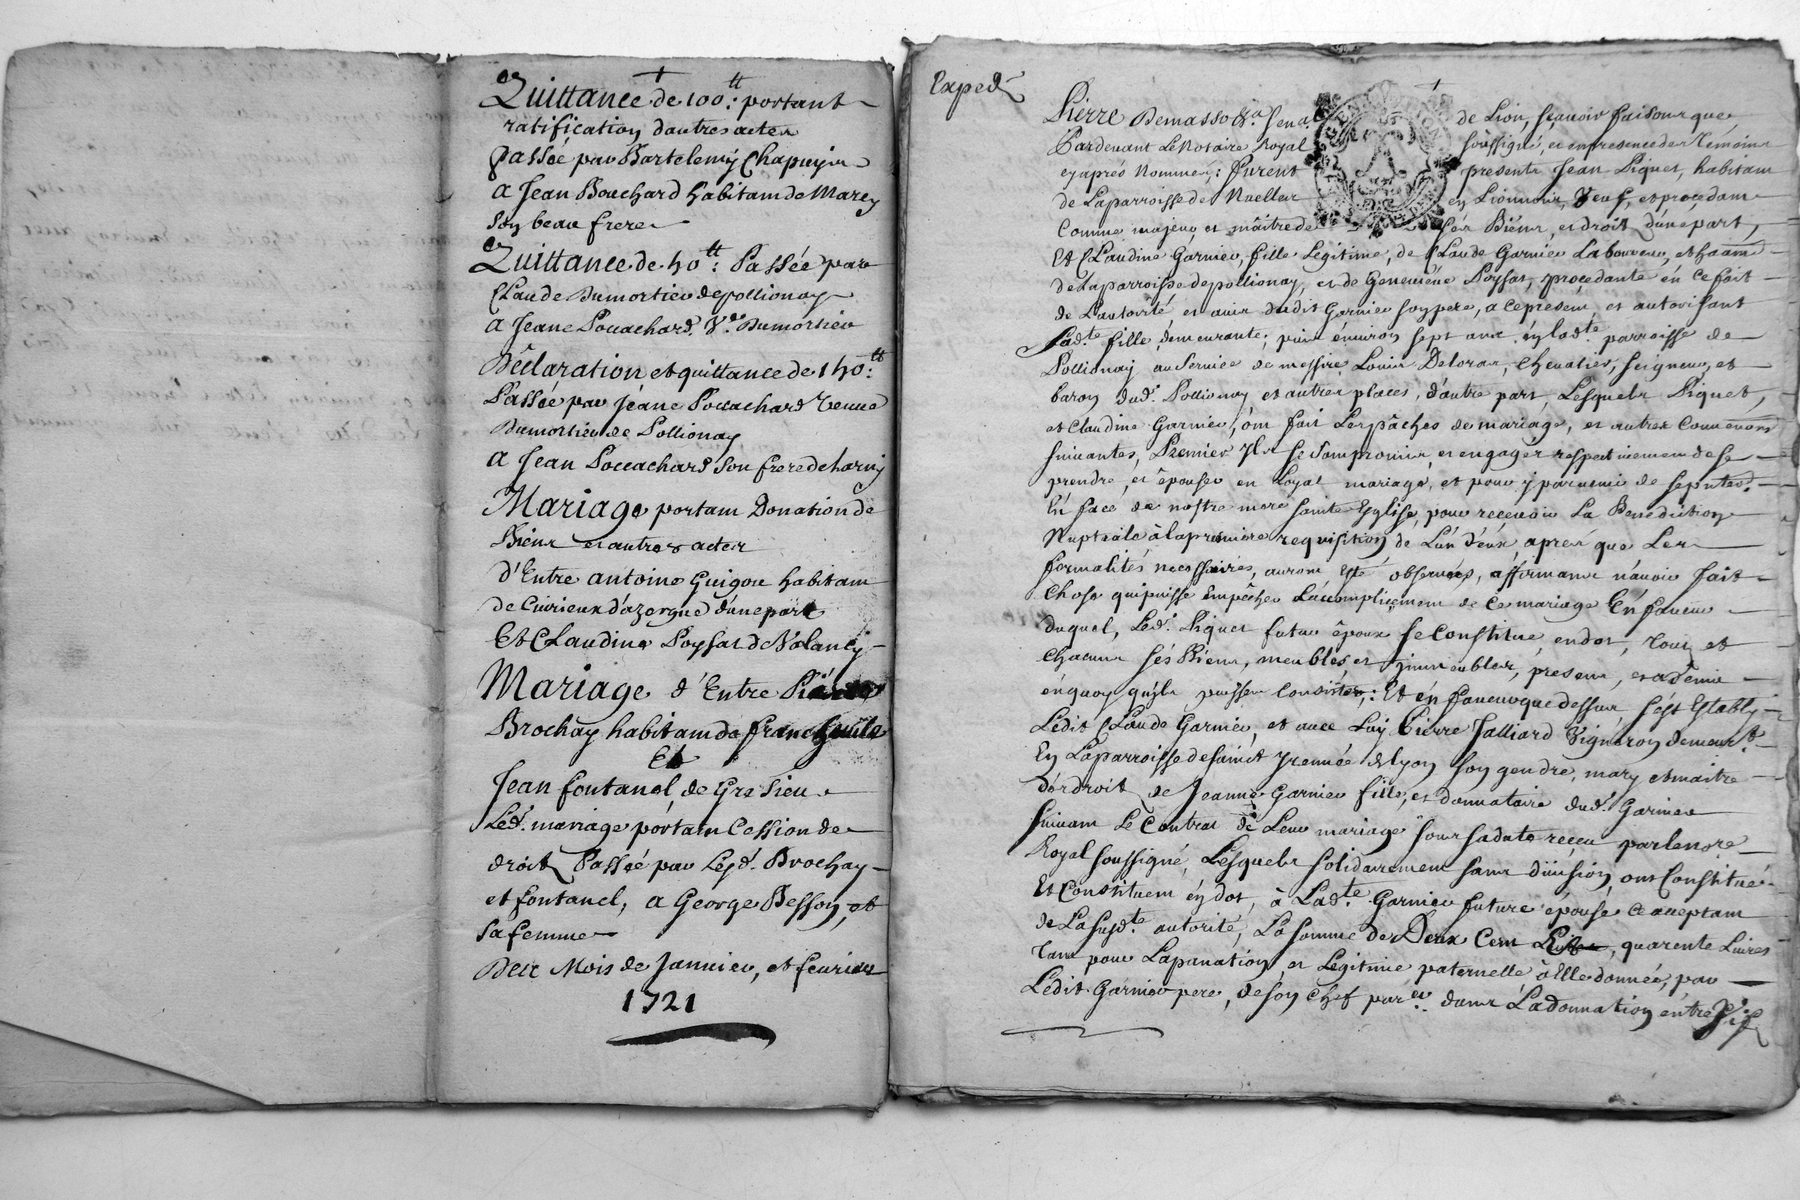 Quittance de 100:tt portant
ratification dautres actes
passée par Bartelemy Chapuy
a Jean Bouchard habitant de Marcy
son beau frere
Quittance de 40tt: Passée par
Claude Dumortier de pollionay
a Jeane Poccachard Ve. Dumortier
Déclaration et quittance de 140:tt
Passée par Jeane Poccachard Veuve
Dumortier de Pollionay
a Jean Poccachard son frere
Mariage portant Donation de
Biens et autres actes
d'Entre antoine Guigou habitant
de Civrieux d'azergue d'une part
Et Claudine Poysat
Mariage d'Entre
Brochay habitant de francheville
Et
Jean fontanel, de Gresieu
Led. mariage portant Cession de
droit Passée par Lesd. Brochay
et fontanel, a George Besson, et
sa femme
Des Mois de Janvier, et fevrier
1721
Exped
Pierre Demasso de Lion, sçavoir faisons que
Pardevant Le Notaire Royal soussigné, et en presence des Témoins
cy après Nommez: furent presents Jean Piquet, habitant
de La parroisse de en Lionnois, Veuf, et procedant
Comme majeur et maître de sés Biens, et droits d'une part,
Et Claudine Garnier, fille Légitime, de Claude Garnier Laboureur, habitant
de La parroisse de pollionay, et de Genevieve Poysat, procedante en ce fait
de L'autorité et avis dudit Garnier son pere, a ce present, et autorisant
Sadte. fille, demeurante, puis environ sept ans en ladte. parroisse de
Pollionay au service de messire Louis Deloras, Chevalier, seigneur, et
baron dud. Pollionay et autres places, d'autre part, Lesquels Piquet,
et Claudine Garnier, ont fait Les pâches de mariage, et autres Conventions
suivantes, Premier Ils se sont promis, et engagez respectivement de se
prendre, et épouser en Loyal mariage, et pour y parvenir de se présenter
En face de nostre mere sainte Eglise, pour recevoir La Benediction
Nuptiale à la premiere requisition de L'un d'eux, apres que Les
formalités necessaires, auront esté observées, affirmant n'avoir fait
Chose qui puisse empêcher L'accomplissement de ce mariage En faveur
duquel, Led. Piquet futur époux se Constitue, en dot, tous et
Chacuns sés Biens, meubles et immeubles, present, et advenir
en quoy qu'ils puissent Consister: Et en faveur que dessus, s'est Estably
Ledit Claude Garnier, et avec Luy Pierre Jalliard Vigneron demeurt.
En La parroisse de saint yrennée de lyon son gendre, mary et maitre
des droits de Jeanne Garnier fille, et donnataire dud. Garnier
suivant Le Contrat de Leur mariage sous sa date reçeu par Le nore.
Royal soussigné, Lesquels solidairement sans division, ont Constitué
Et Constituent en dot, à Ladte. Garnier future épouse ce acceptant
de La susdte. autorité, La somme de Deux Cent quarente Livres
tant pour La portion et Legitime paternelle à Elle donnée, par
Ledit Garnier pere, de son Chef dans La donnation entre Vif